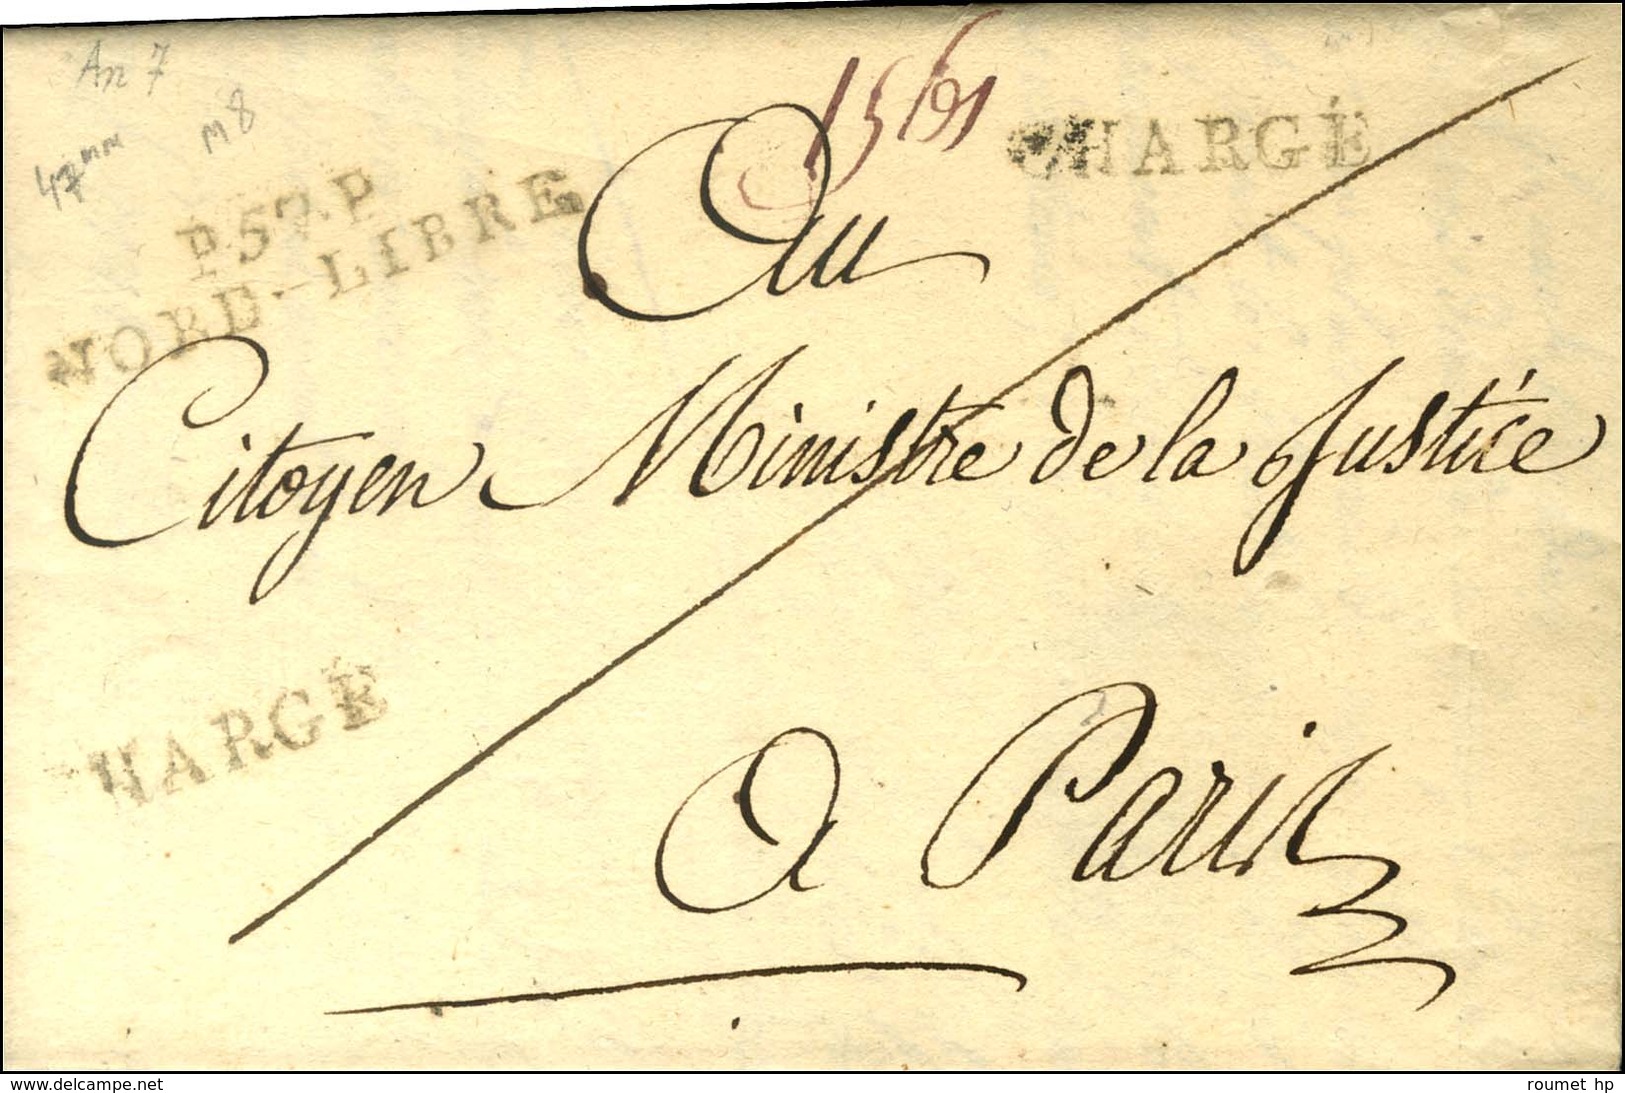 An 7
47mm
M 8
P.57.P
NORD-LIBRE
CHARGÉ
Au
Citoyen Ministre de la Justice
HARGÉ
a Paris
www.delcampe.net
roumet hp